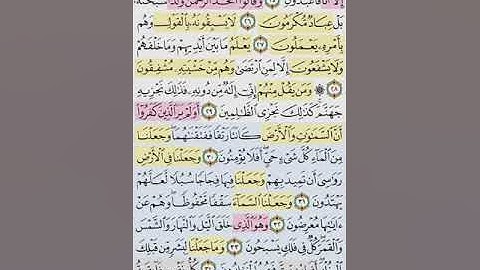 إِلَّا أَنَا۠ فَٱعْبُدُونِ ٢٥ وَقَالُوا۟ ٱتَّخَذَ ٱلرَّحْمَٰنُ وَلَدًا سُبْحَٰنَهُۥ
بَلْ عِبَادٌ مُّكْرَمُونَ ٢٦ لَا يَسْبِقُونَهُۥ بِٱلْقَوْلِ وَهُم
بِأَمْرِهِۦ يَعْمَلُونَ ٢٧ يَعْلَمُ مَا بَيْنَ أَيْدِيهِمْ وَمَا خَلْفَهُمْ
وَلَا يَشْفَعُونَ إِلَّا لِمَنِ ٱرْتَضَىٰ وَهُم مِّنْ خَشْيَتِهِۦ مُشْفِقُونَ
٢٨ ۞ وَمَن يَقُلْ مِنْهُمْ إِنِّىٓ إِلَٰهٌ مِّن دُونِهِۦ فَذَٰلِكَ نَجْزِيهِ
جَهَنَّمَ كَذَٰلِكَ نَجْزِى ٱلظَّٰلِمِينَ ٢٩ أَوَلَمْ يَرَ ٱلَّذِينَ كَفَرُوٓا۟
أَنَّ ٱلسَّمَٰوَٰتِ وَٱلْأَرْضَ كَانَتَا رَتْقًا فَفَتَقْنَٰهُمَا وَجَعَلْنَا
مِنَ ٱلْمَآءِ كُلَّ شَىْءٍ حَىٍّ أَفَلَا يُؤْمِنُونَ ٣٠ وَجَعَلْنَا فِى ٱلْأَرْضِ
رَوَٰسِىَ أَن تَمِيدَ بِهِمْ وَجَعَلْنَا فِيهَا فِجَاجًا سُبُلًا لَّعَلَّهُمْ
يَهْتَدُونَ ٣١ وَجَعَلْنَا ٱلسَّمَآءَ سَقْفًا مَّحْفُوظًا وَهُمْ عَنْ
ءَايَٰتِهَا مُعْرِضُونَ ٣٢ وَهُوَ ٱلَّذِى خَلَقَ ٱلَّيْلَ وَٱلنَّهَارَ وَٱلشَّمْسَ
وَٱلْقَمَرَ كُلٌّ فِى فَلَكٍ يَسْبَحُونَ ٣٣ وَمَا جَعَلْنَا لِبَشَرٍ مِّن قَبْلِكَ